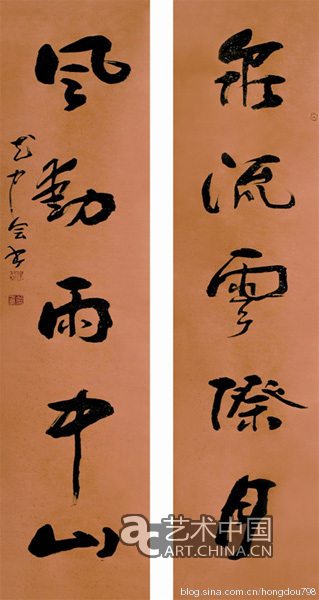 泉流雲際月
風動雨中山
AC 艺术中国
ART.CHINA.CN
blog.sina.com.cn/hongdou798